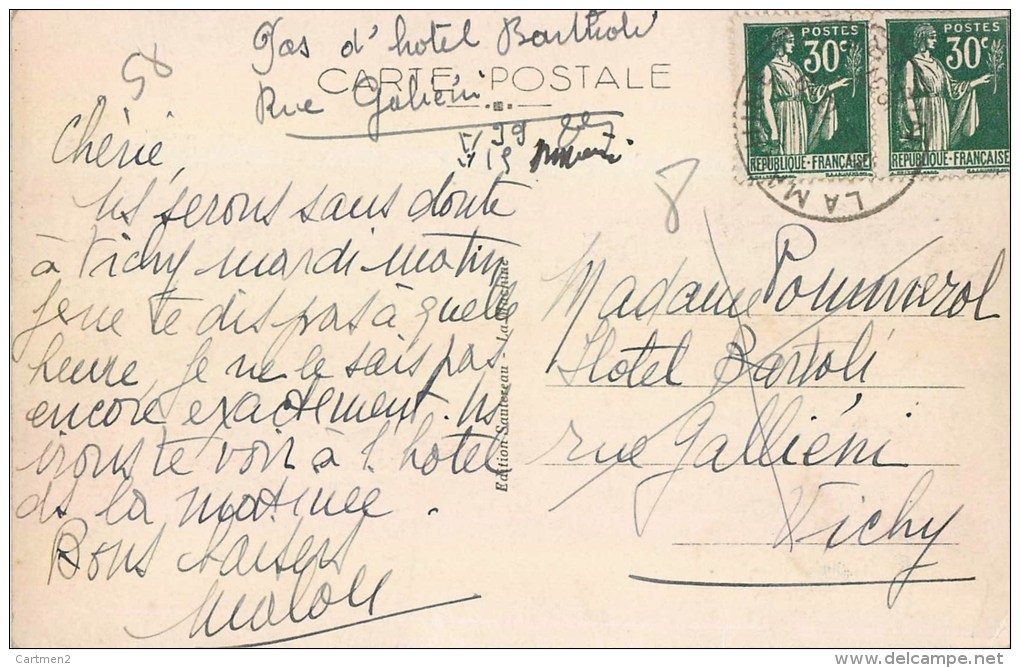 58
Pas d'hotel Bartholi
Rue Galiéni
CARTE POSTALE
POSTES
30c
REPUBLIQUE-FRANÇAISE
POSTES
30c
REPUBLIQUE-FRANÇAISE
LA MA
8
Chérie,
Ns serons sans doute
à Vichy mardi matin
je ne te dis pas à quelle
heure, je ne le sais pas
encore exactement. Ns
irons te voir à l'hotel
ds la matinée.
Bons baisers
Edition Sautereau - La Machine
Madame Pommerol
Hotel Bartoli
rue Galliéni
Vichy
Cartmen2
www.delcampe.net